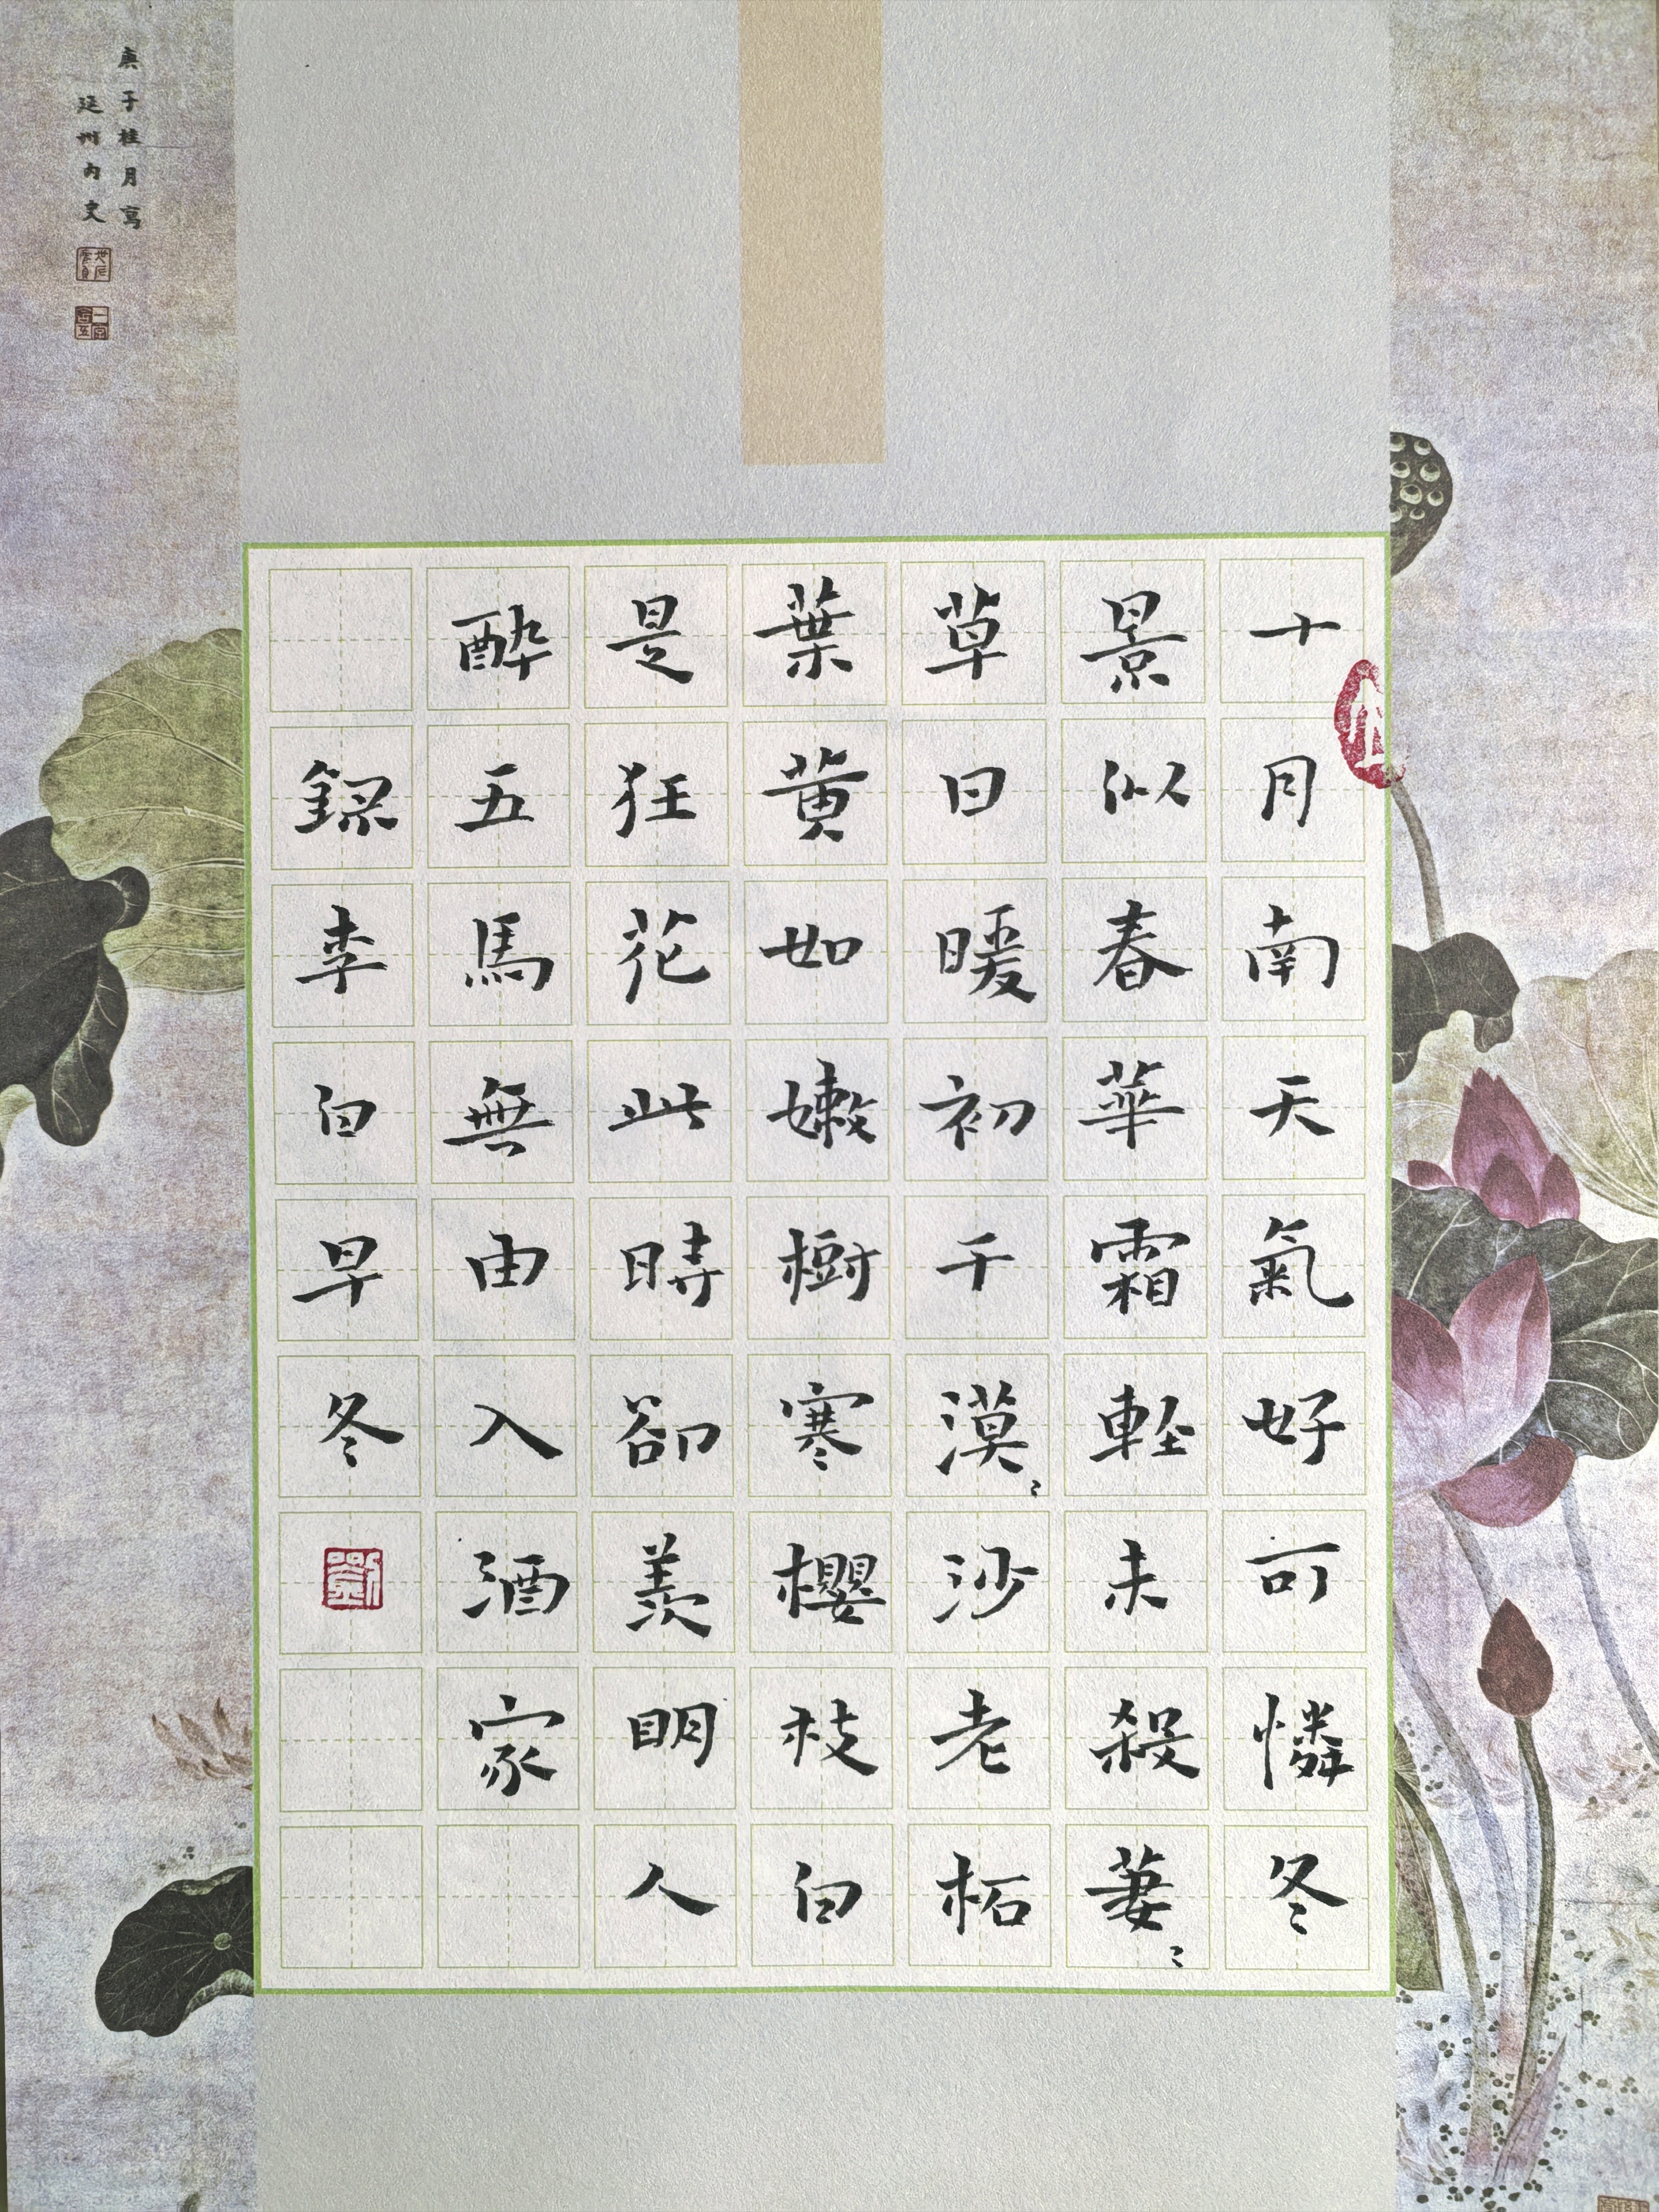 十月南天氣好可憐冬
景似春華霜輕未殺萋〻
草日暖初干漠〻沙老柘
葉黃如嫩樹寒櫻枝白
是狂花此時卻羨明人
醉五馬無由入酒家
錄李白早冬
劉
庚子桂月寫
延州內史